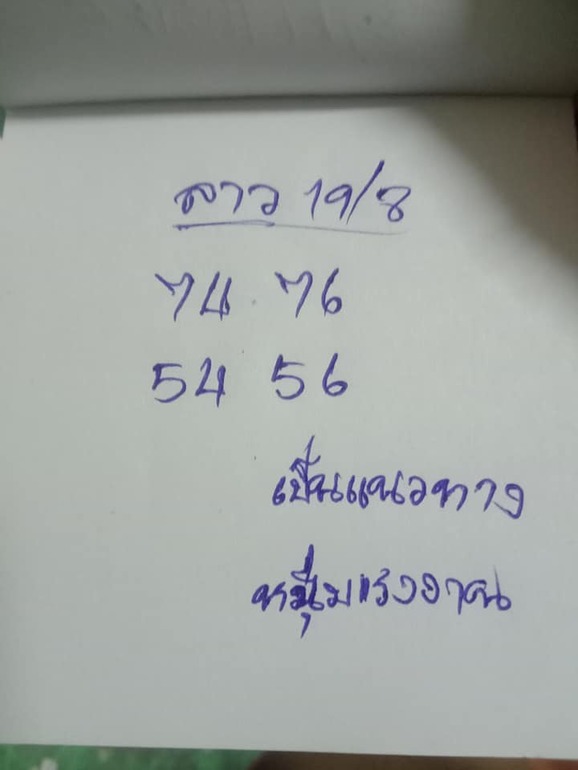 ลาว 19/8
74 76
54 56
เป็นแนวทาง
หนุ่ม